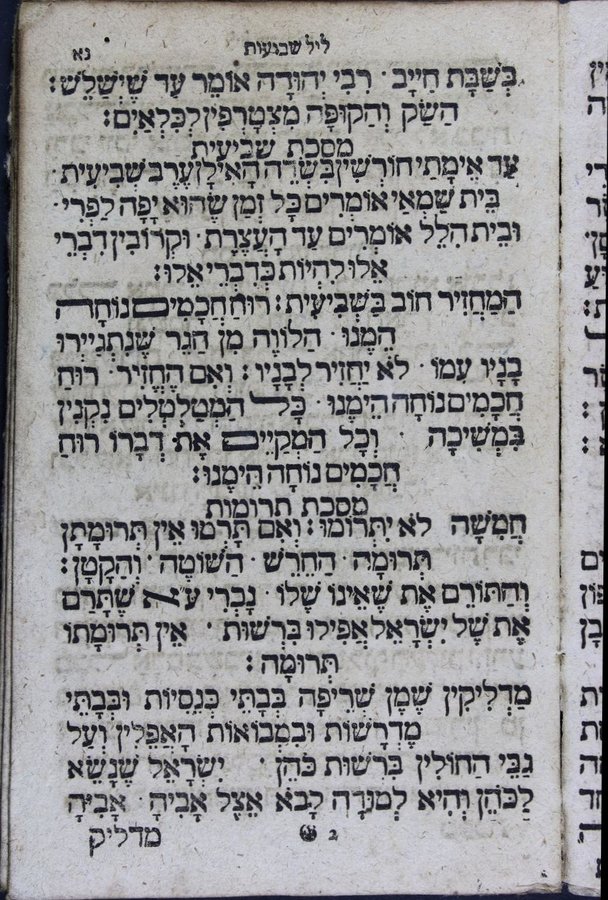 ליל שבועות
נא
בְּשַׁבָּת חַיָּיב · רִבִּי יְהוּדָה אוֹמֵר עַד שֶׁיְשַׁלֵּשׁ:
הַשַּׂק וְהַקּוּפָּה מִצְטָרְפִין לְכִלְאַיִם:
מסכת שביעית
עַד אֵימָתַי חוֹרְשִׁין בִּשְׂדֵה הָאִילָן עֶרֶב שְׁבִיעִית ·
בֵּית שַׁמַּאי אוֹמְרִים כָּל זְמַן שֶׁהוּא יָפֶה לַפְּרִי ·
וּבֵית הִלֵּל אוֹמְרִים עַד הָעֲצֶרֶת · וּקְרוֹבִין דִּבְרֵי
אֵלּוּ לִהְיוֹת כְּדִבְרֵי אֵלּוּ:
הַמַּחֲזִיר חוֹב בַּשְּׁבִיעִית: רוּחַ חֲכָמִים נוֹחָה
הֵמֶנּוּ · הַלּוֹוֶה מִן הַגֵּר שֶׁנִּתְגַּיְּירוּ
בָּנָיו עִמּוֹ · לֹא יַחֲזִיר לְבָנָיו: וְאִם הֶחֱזִיר · רוּחַ
חֲכָמִים נוֹחָה הֵימֶנּוּ · כָּל הַמְּטַלְטְלִים נִקְנִין
בִּמְשִׁיכָה · וְכָל הַמְקַיֵּים אֶת דְּבָרוֹ רוּחַ
חֲכָמִים נוֹחָה הֵימֶנּוּ:
מסכת תרומות
חֲמִשָּׁה לֹא יִתְרוֹמוּ: וְאִם תָּרְמוּ אֵין תְּרוּמָתָן
תְּרוּמָה · הַחֵרֵשׁ · הַשּׁוֹטֶה · וְהַקָּטָן:
וְהַתּוֹרֵם אֶת שֶׁאֵינוֹ שֶׁלּוֹ · נָכְרִי שֶׁתָּרַם
אֶת שֶׁל יִשְׂרָאֵל אֲפִילוּ בִּרְשׁוּת · אֵין תְּרוּמָתוֹ
תְּרוּמָה:
מַדְלִיקִין שֶׁמֶן שְׂרֵיפָה בְּבָתֵּי כְּנֵסִיּוֹת וּבְבָתֵּי
מִדְרָשׁוֹת וּבִמְבוֹאוֹת הָאֲפֵלִין וְעַל
גַּבֵּי הַחוֹלִין בִּרְשׁוּת כֹּהֵן · יִשְׂרָאֵל שֶׁנָּשָׂא
לַכֹּהֵן וְהִיא לְמוּדָה לָבֹא אֵצֶל אָבִיהָ · אָבִיהָ
2
מדליק